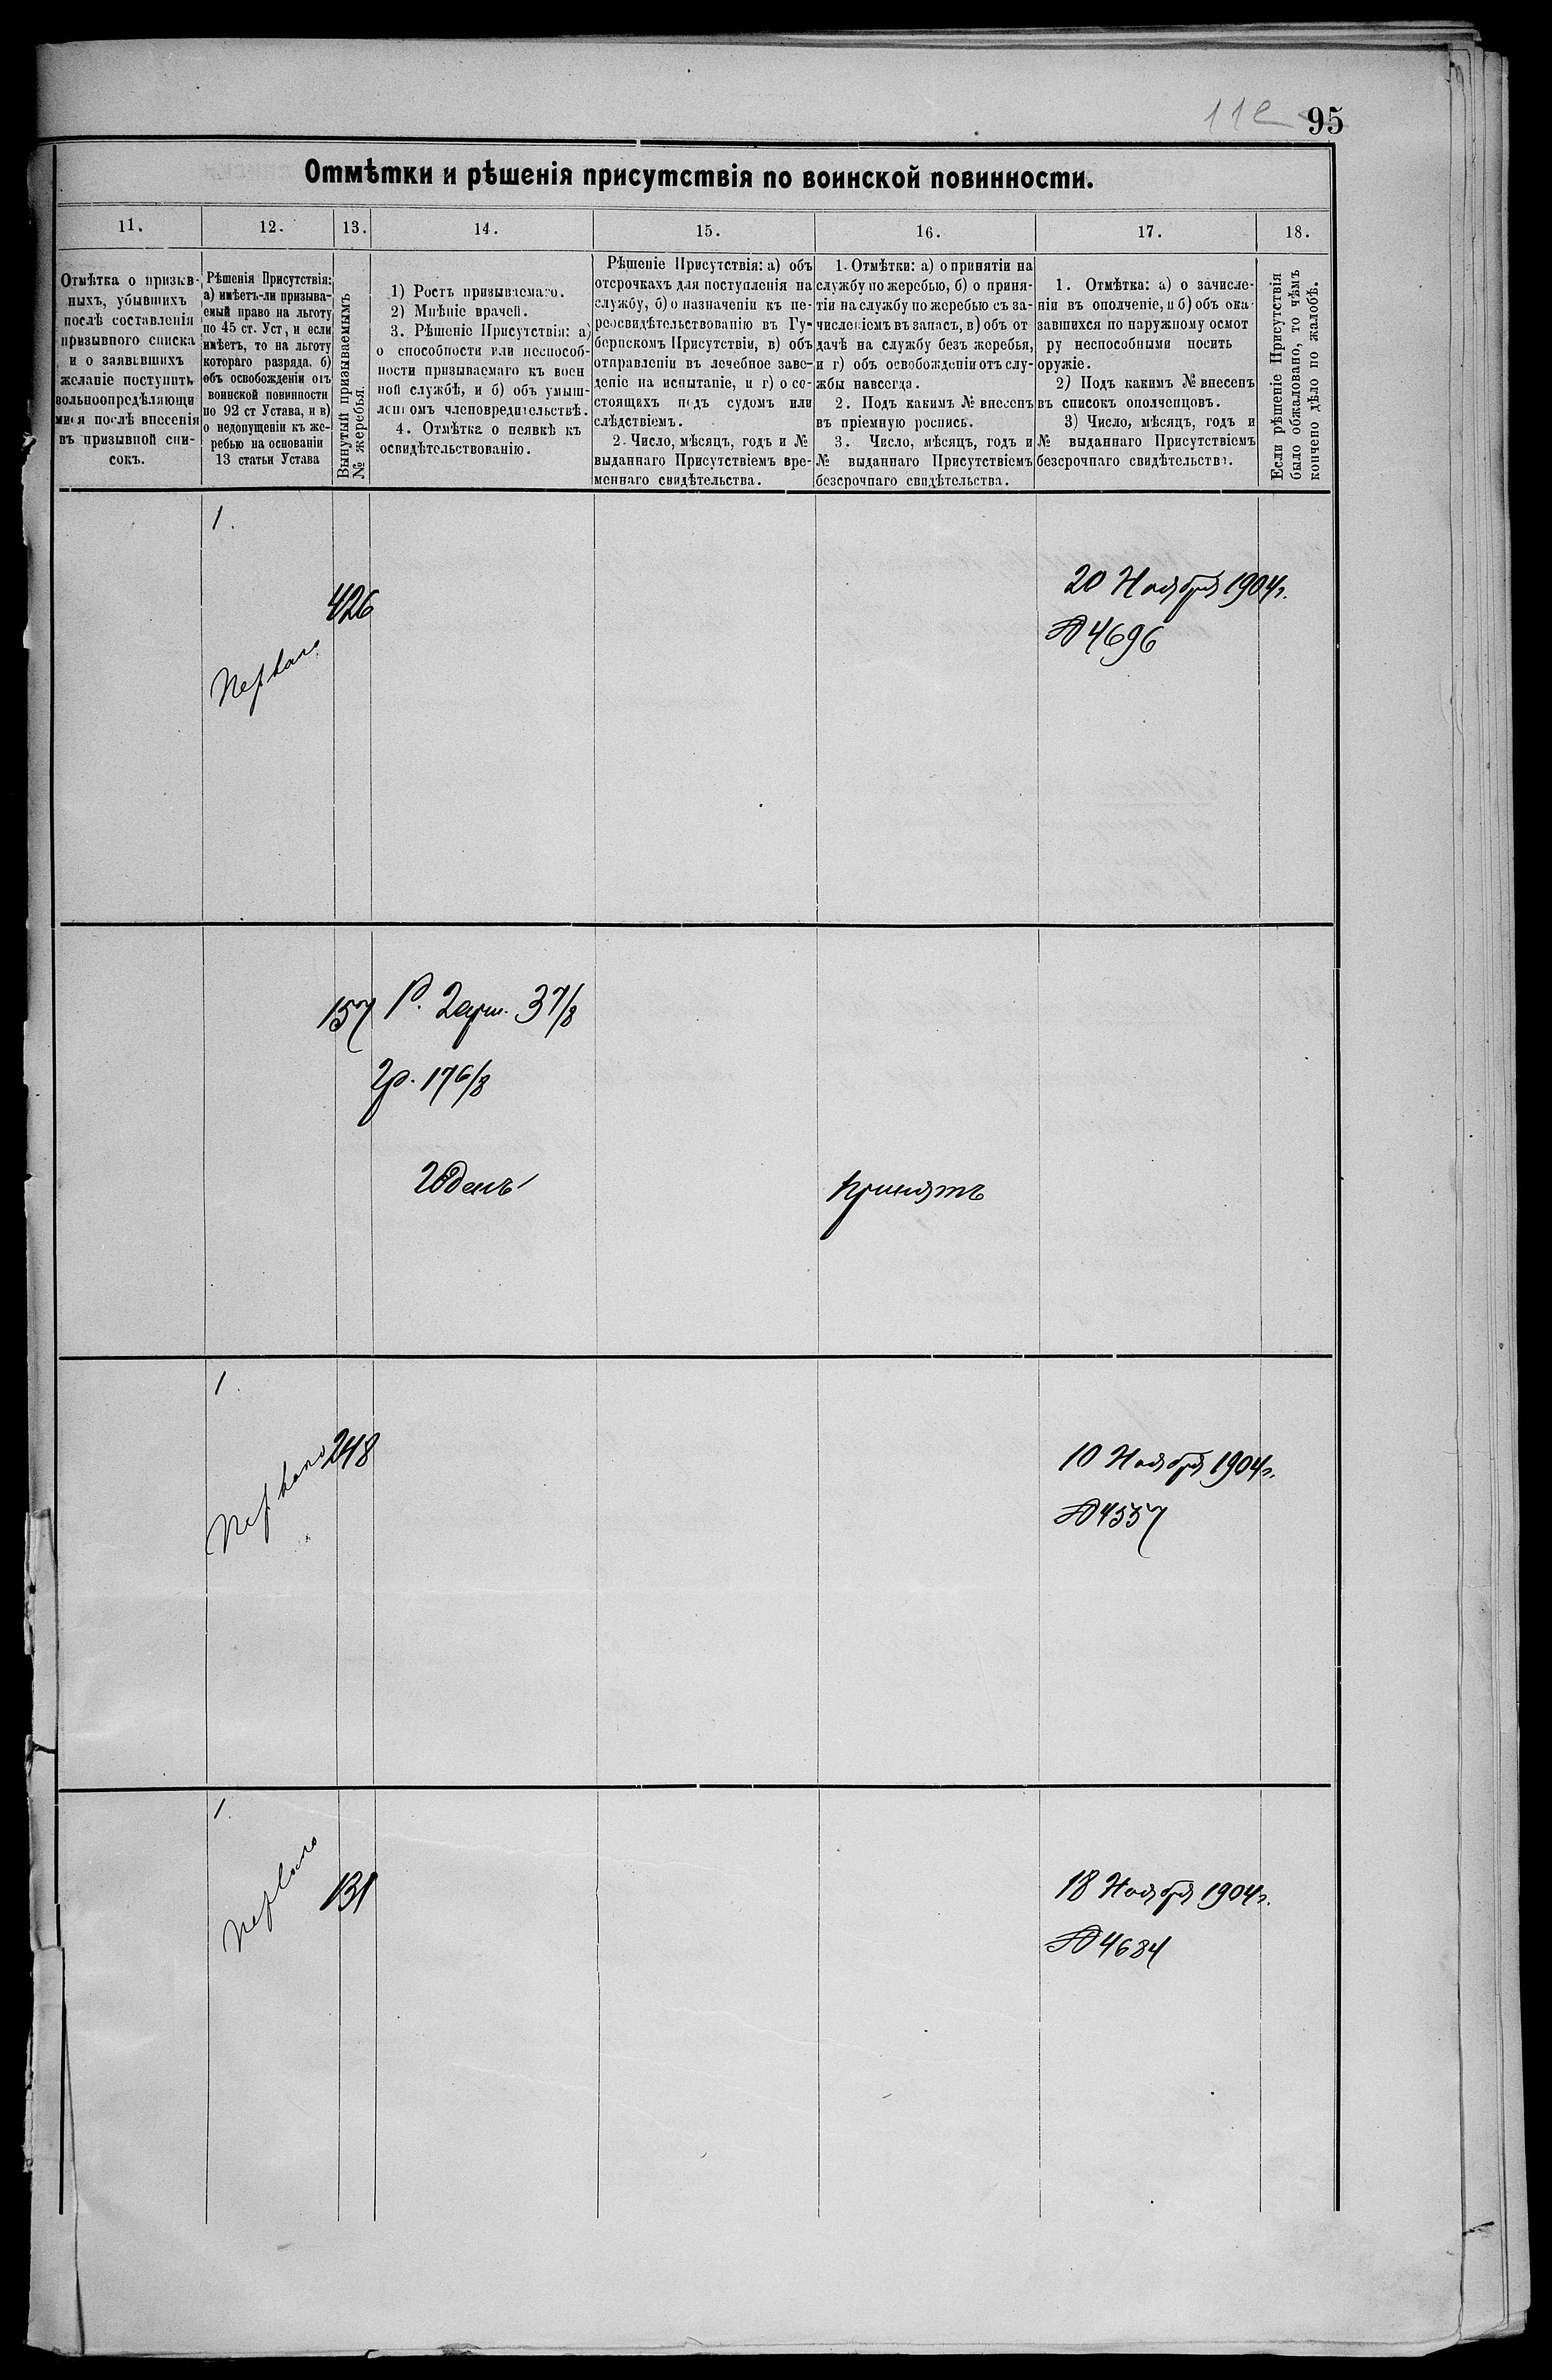 11е 95
Отмѣтки и рѣшенія присутствія по воинской повинности.
11. 12. 13. 14. 15. 16. 17. 18.
Отмѣтка о призыв-
ныхъ, убывшихъ
послѣ составленія
призывного списка
и о заявившихъ
желаніе поступить
вольноопредѣляющи
мися послѣ внесенія
въ призывной спи-
сокъ.
Рѣшенія Присутствія:
а) имѣетъ-ли призыва-
емый право на льготу
по 45 ст. Уст, и если
имѣетъ, то на льготу
котораго разряда. б)
объ освобожденіи отъ
воинской повинности
по 92 ст Устава, и в)
о недопущеніи къ же-
ребью на основаніи
13 статьи Устава
Вынутый призываемымъ
№ жеребья.
1) Ростъ призываемаго.
2) Мнѣніе врачей.
3. Рѣшеніе Присутствія: а)
о способности или неспособ-
ности призываемаго къ воен
ной службѣ, и б) объ умыш-
леномъ членовредительствѣ.
4. Отмѣтка о неявкѣ къ
освидѣтельствованію.
Рѣшеніе Присутствія: а) объ
отсрочкахъ для поступленія на
службу, б) о назначеніи къ пе-
реосвидѣтельствованію въ Гу-
бернскомъ Присутствіи, в) объ
отправленіи въ лечебное заве-
деніе на испытаніе, и г) о со-
стоящихъ подъ судомъ или
слѣдствіемъ.
2. Число, мѣсяцъ, годъ и №
выданнаго Присутствіемъ вре-
меннаго свидѣтельства.
1. Отмѣтки: а) о принятіи на
службу по жеребью, б) о приня-
тіи на службу по жеребью съ за-
численіемъ въ запасъ, в) объ от
дачѣ на службу безъ жеребья,
и г) объ освобожденіи отъ слу-
жбы навсегда.
2. Подъ какимъ № внесенъ
въ пріемную роспись.
3. Число, мѣсяцъ, годъ и
№ выданнаго Присутствіемъ
безсрочнаго свидѣтельства.
1. Отмѣтка: а) о зачисле-
ніи въ ополченіе, и б) объ ока
завшихся по наружному осмот
ру неспособными носить
оружіе.
2) Подъ какимъ № внесенъ
въ списокъ ополченцовъ.
3) Число, мѣсяцъ, годъ и
№ выданнаго Присутствіемъ
безсрочнаго свидѣтельства.
Если рѣшеніе Присутствія
было обжаловано, то чѣмъ
кончено дѣло по жалобѣ.
1.
426
Перваго
20 Ноября 1904 г.
№ 4696
157 Р. 2 арш. 3 7/8
Гр. 17 6/8
Годенъ
принятъ
1.
Перваго 248
10 Ноября 1904 г.
№ 4557
1.
Перваго 131
18 Ноября 1904 г.
№ 4684